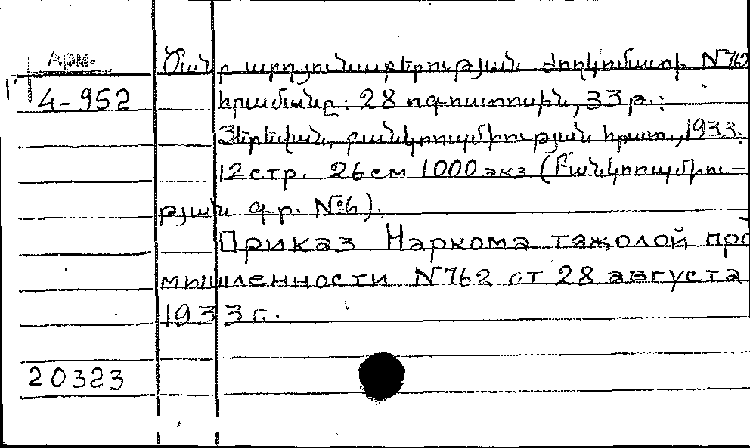 Арм.
Ծանր արդյունաբերության ժողկոմատի N762
4-952
հրամանը: 28 օգոստոսին, 33թ.:
Յերեվան, բանկոոպմիության հրատ., 1933.
12 стр. 26 см 1000 экз (Բանկոոպմիու-
թյան գ.ր. №6).
Приказ Наркома тяжолой про
мишленности N762 от 28 августа
1933 г.
20323